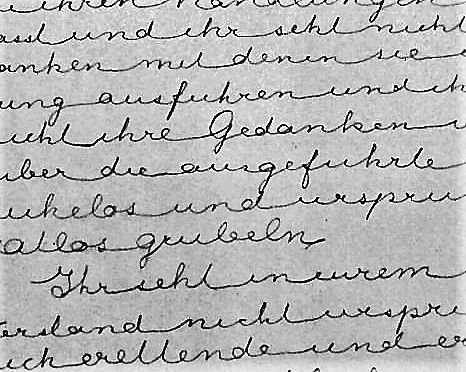 ihren Handlungen
asst und ihr seht nicht
anken mit denen sie
ung ausfuhren und ih
icht ihre Gedanken
uber die ausgefuhrte
und urspru
atlos grubeln
Ihr seht in eurem
erstand nicht urspru
und er